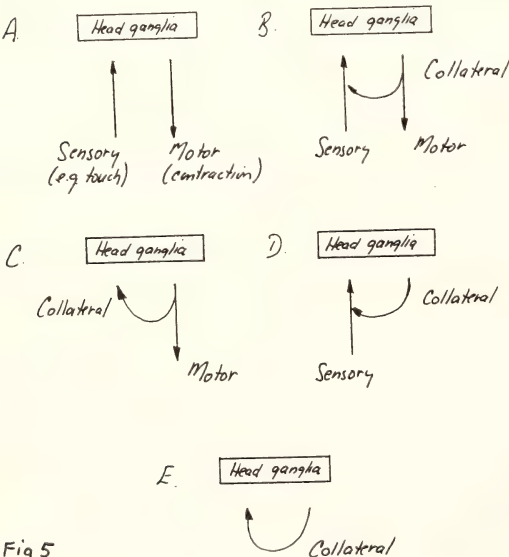 A.
Head ganglia
Sensory
(e.g. touch)
Motor
(contraction)
B.
Head ganglia
Collateral
Sensory
Motor
C.
Head ganglia
Collateral
Motor
D.
Head ganglia
Collateral
Sensory
E.
Head ganglia
Collateral
Fig 5